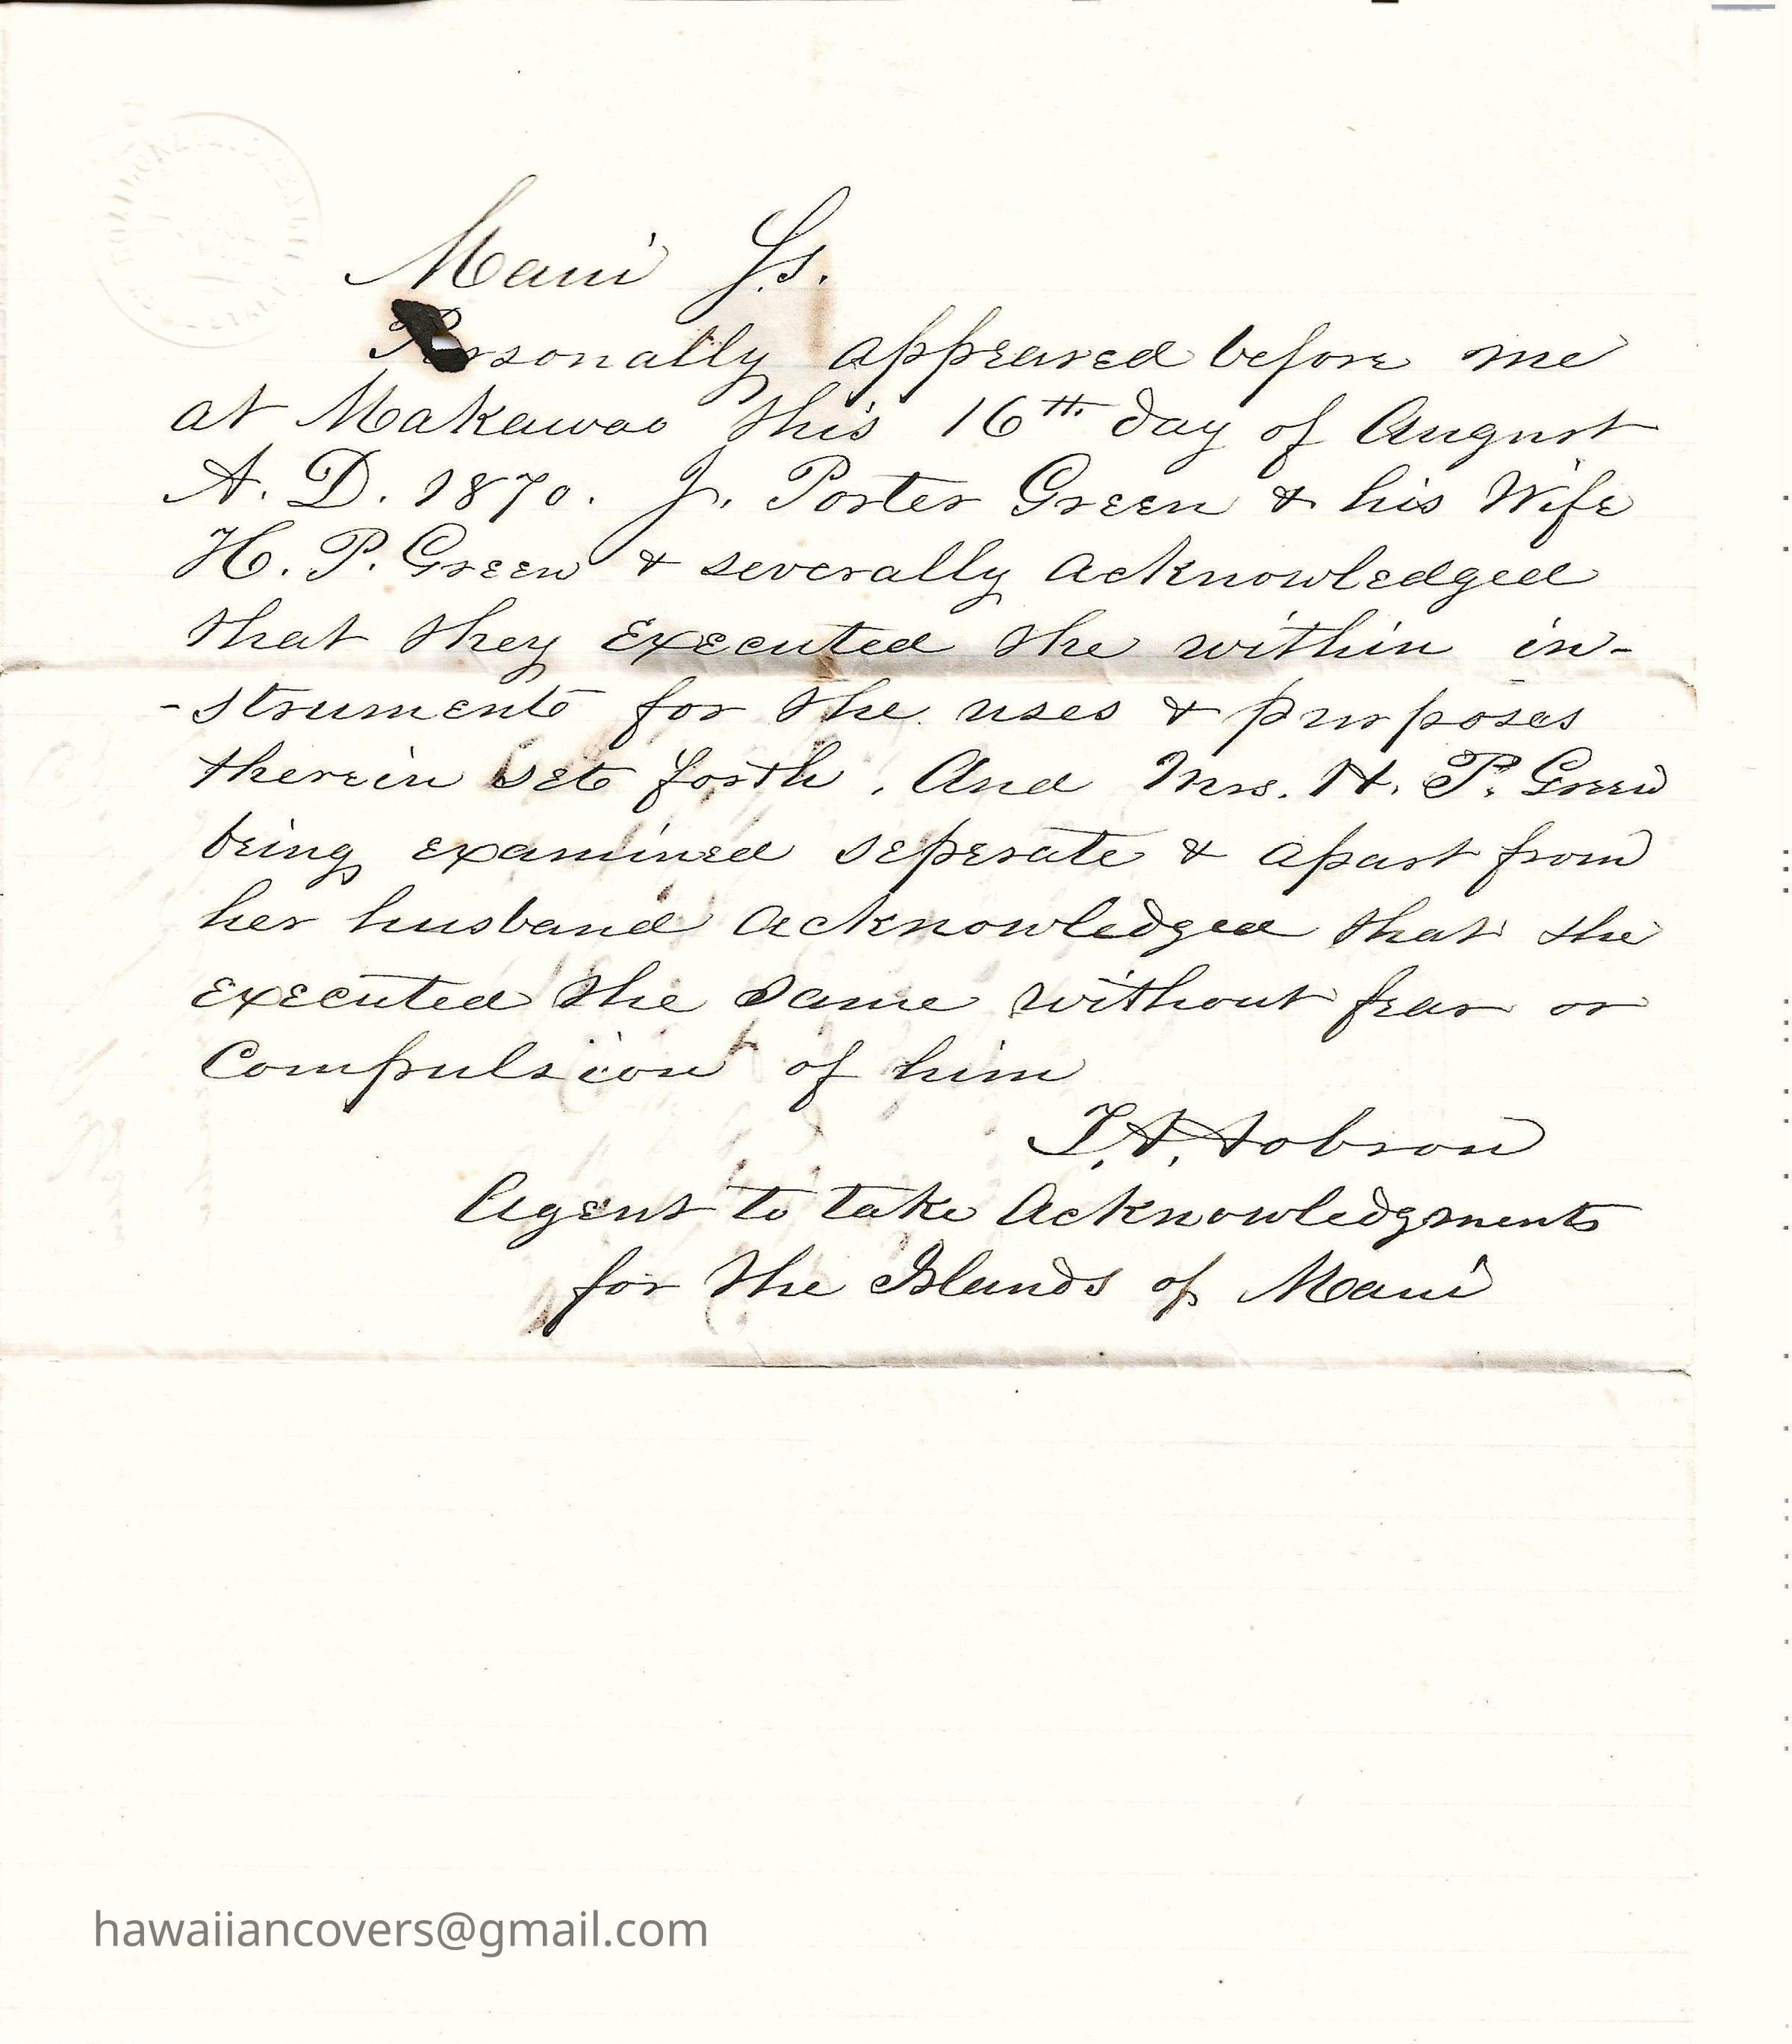 Maui Ss.
Personally appeared before me
at Makawao this 16th day of August
A. D. 1870. J. Porter Green & his Wife
H. P. Green & severally acknowledged
that they executed the within in-
-struments for the uses & purposes
therein set forth, And Mrs. H. P. Green
being examined seperate & apart from
her husband acknowledged that she
executed the same without fear or
Compulsion of him
Agent to take Acknowledgments
for the Islands of Maui
hawaiiancovers@gmail.com